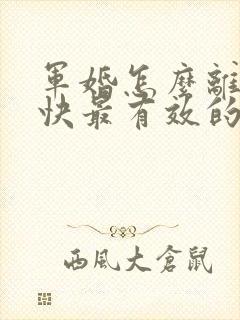 軍婚怎麼離
快最有效的
西風大倉鼠